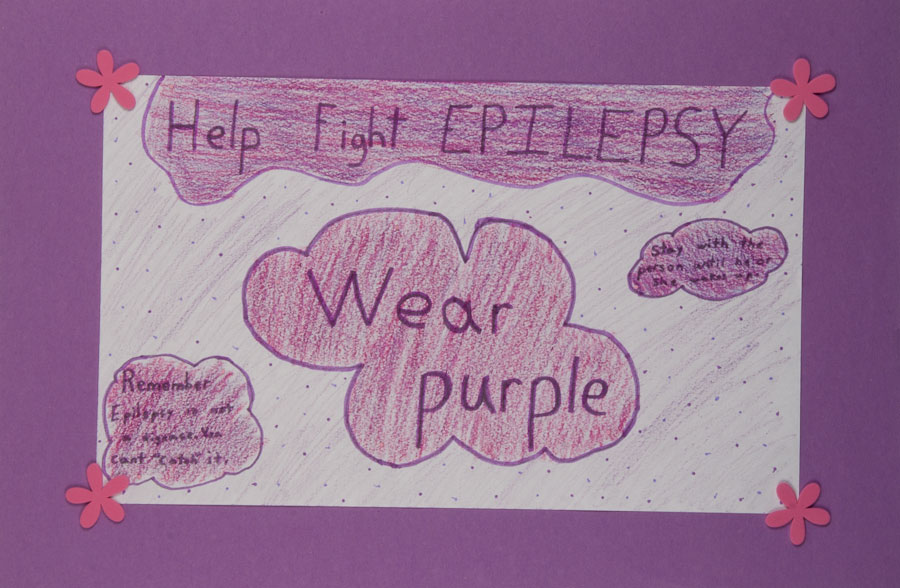 Help Fight EPILEPSY
Wear
purple
Stay with the
person until he or
she wakes up.
Remember
Epilepsy is not
a disease. You
cant "catch" it.